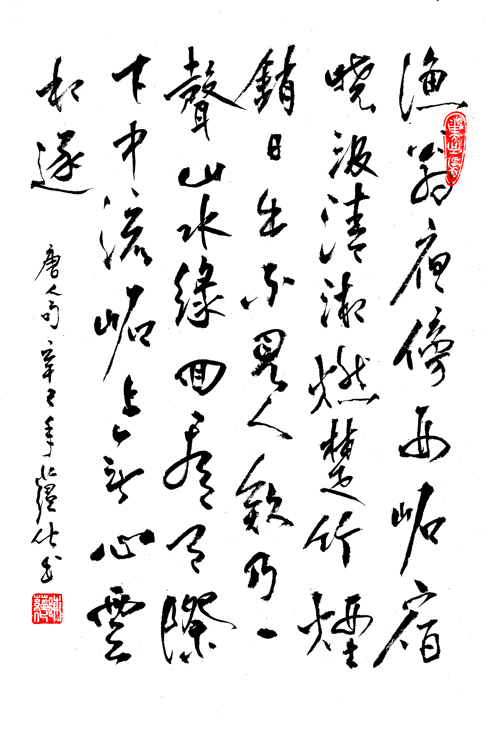 漁翁夜傍西岩宿
曉汲清湘燃楚竹煙
銷日出不見人欸乃一
聲山水綠回看天際
下中流岩上無心雲
相逐
唐人句辛巳年